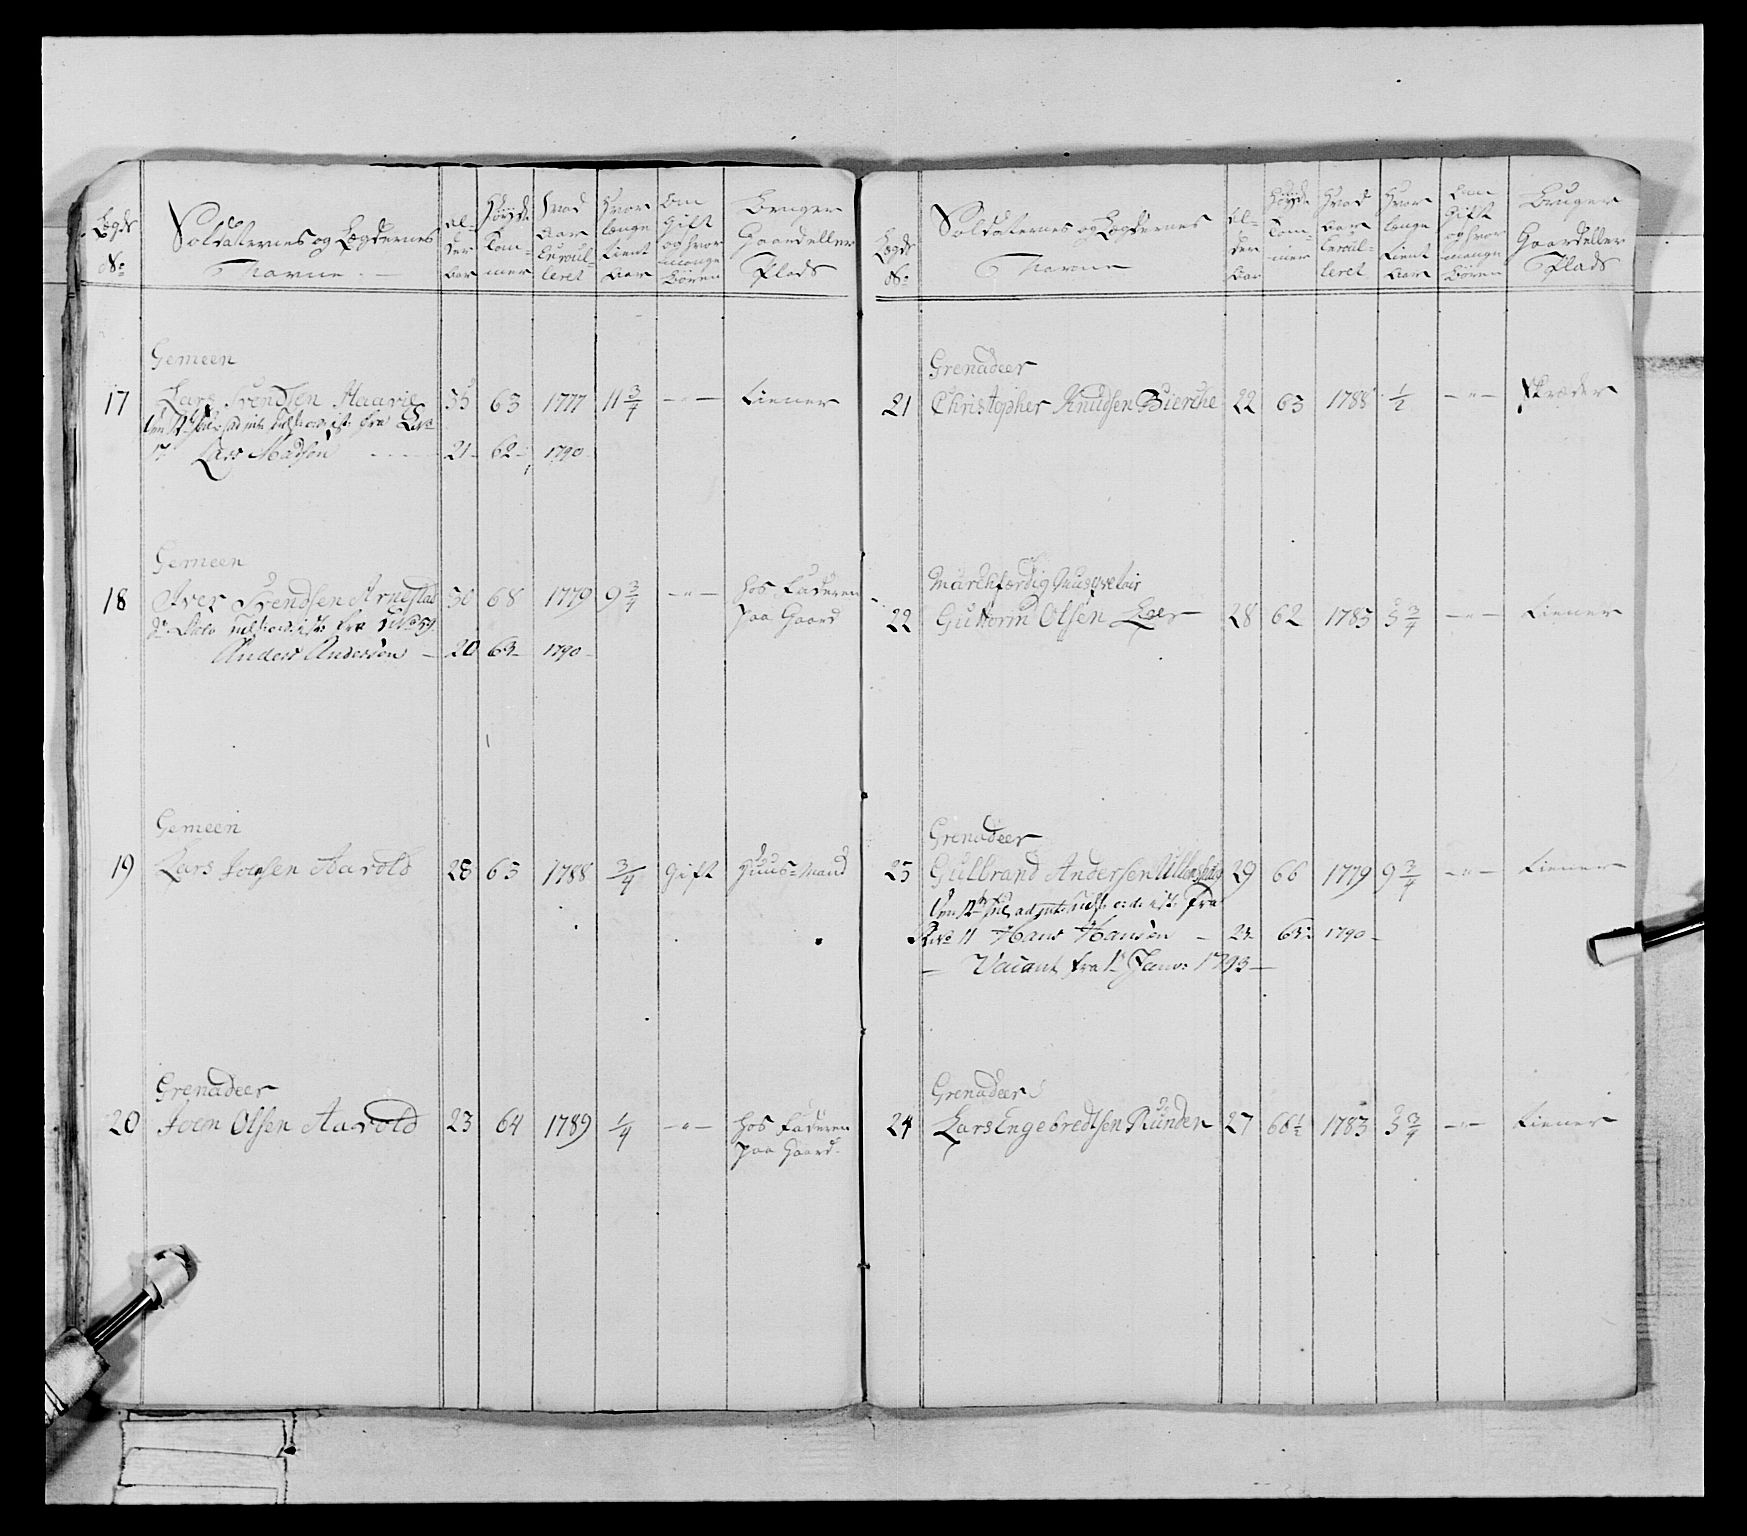 Lægds No
Soldaternes og Lægdernes Navne
Al-der Aar
Høyde Tom-mer
Hvad Aar Enroul-leret
Hvor længe Tient Aar
Om Gift og hvor mange Børen
Bruger Gaard eller Plads
Gemeen
17 Lars Svendsen Haarie 35 63 1777 11 3/4 - " - Tiener
fra
17 Lars Madsen 21 62 1790
Gemeen
18 Iver Svendsen Arnestad 30 68 1779 9 3/4 - " - Hos Faderen
paa Gaard
fra No 59
Anders Andersen 20 63 1790
Gemeen
19 Lars Joensen Aarold 28 65 1788 3/4 Gift Huus-Mand
Grenadeer
20 Joen Olsen Aarold 23 64 1789 1/4 - " - Hos Faderen
paa Gaard
Lægds No
Soldaternes og Lægdernes Navne
Al-der Aar
Høyde Tom-mer
Hvad Aar Enroul-leret
Hvor længe Tient Aar
Om Gift og hvor mange Børen
Bruger Gaard eller Plads
Grenadeer
21 Christopher Knudsen Bierche 22 63 1788 1/2 - " - Skræder
Marchfærdig Musqvetair
22 Guttorm Olsen Loe 28 62 1783 5 3/4 - " - Tiener
Grenadeer
23 Gulbrand Andersen 29 66 1779 9 3/4 - " - Tiener
fra
No 11 Hans Hansen 23 1790
Vacant fra 1 Janv: 1793
Grenadeer
24 Lars Engebredtsen Runden 27 66 1/2 1783 5 3/4 - " - Tiener